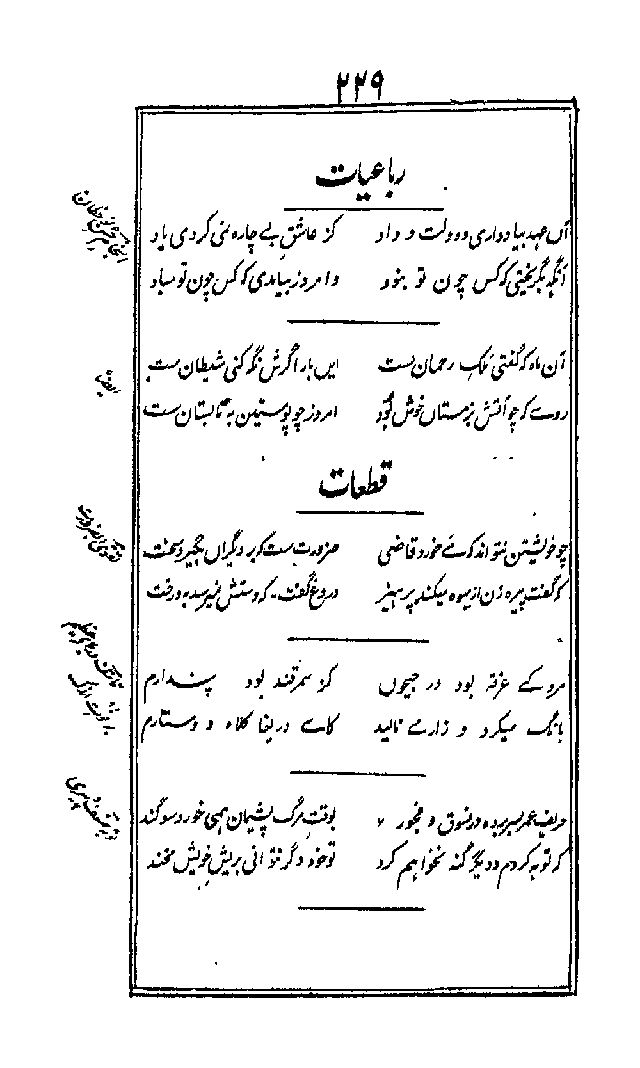 ۲۲۹
رباعیات
آں عہد بیاد داری و دولت و داد کز عاشقِ بے چارہ نمی کردی یاد
آنگہ بگریختی کہ کس چون تو بنود وامروز بیامدی کہ کس چون تو مباد
آن ماہ کہ گفتی ملکِ رحمان ست ایں بار اگرش نگہ کنی شیطان ست
ایضاً
روے کہ چو آتش بزمستاں خوش بود امروز چو پوستین بہ تابستان ست
قطعات
چو خویشتن نتواند کہ مے خورد قاضی ضرورت ست کہ بر دیگراں بگیرد سخت
کہ گفت پیرہ زن از میوہ میکند پرہیز دروغ گفت۔ کہ دستش نمیرسد بہ درخت
مرد کے غرقہ بود در جیحوں کز سمرقند بود پندارم
بانگ میکرد و زارے نالید کاے دریغا کلاہ و دستارم
حریف عمر بسر بردہ در فسوق و فجور بوقتِ مرگ پشیمان ہمی خورد سوگند
کہ توبہ کردم و دیگر گنہ نخواہم کرد تو خود دگر نتوانی بریشِ خویش مخند